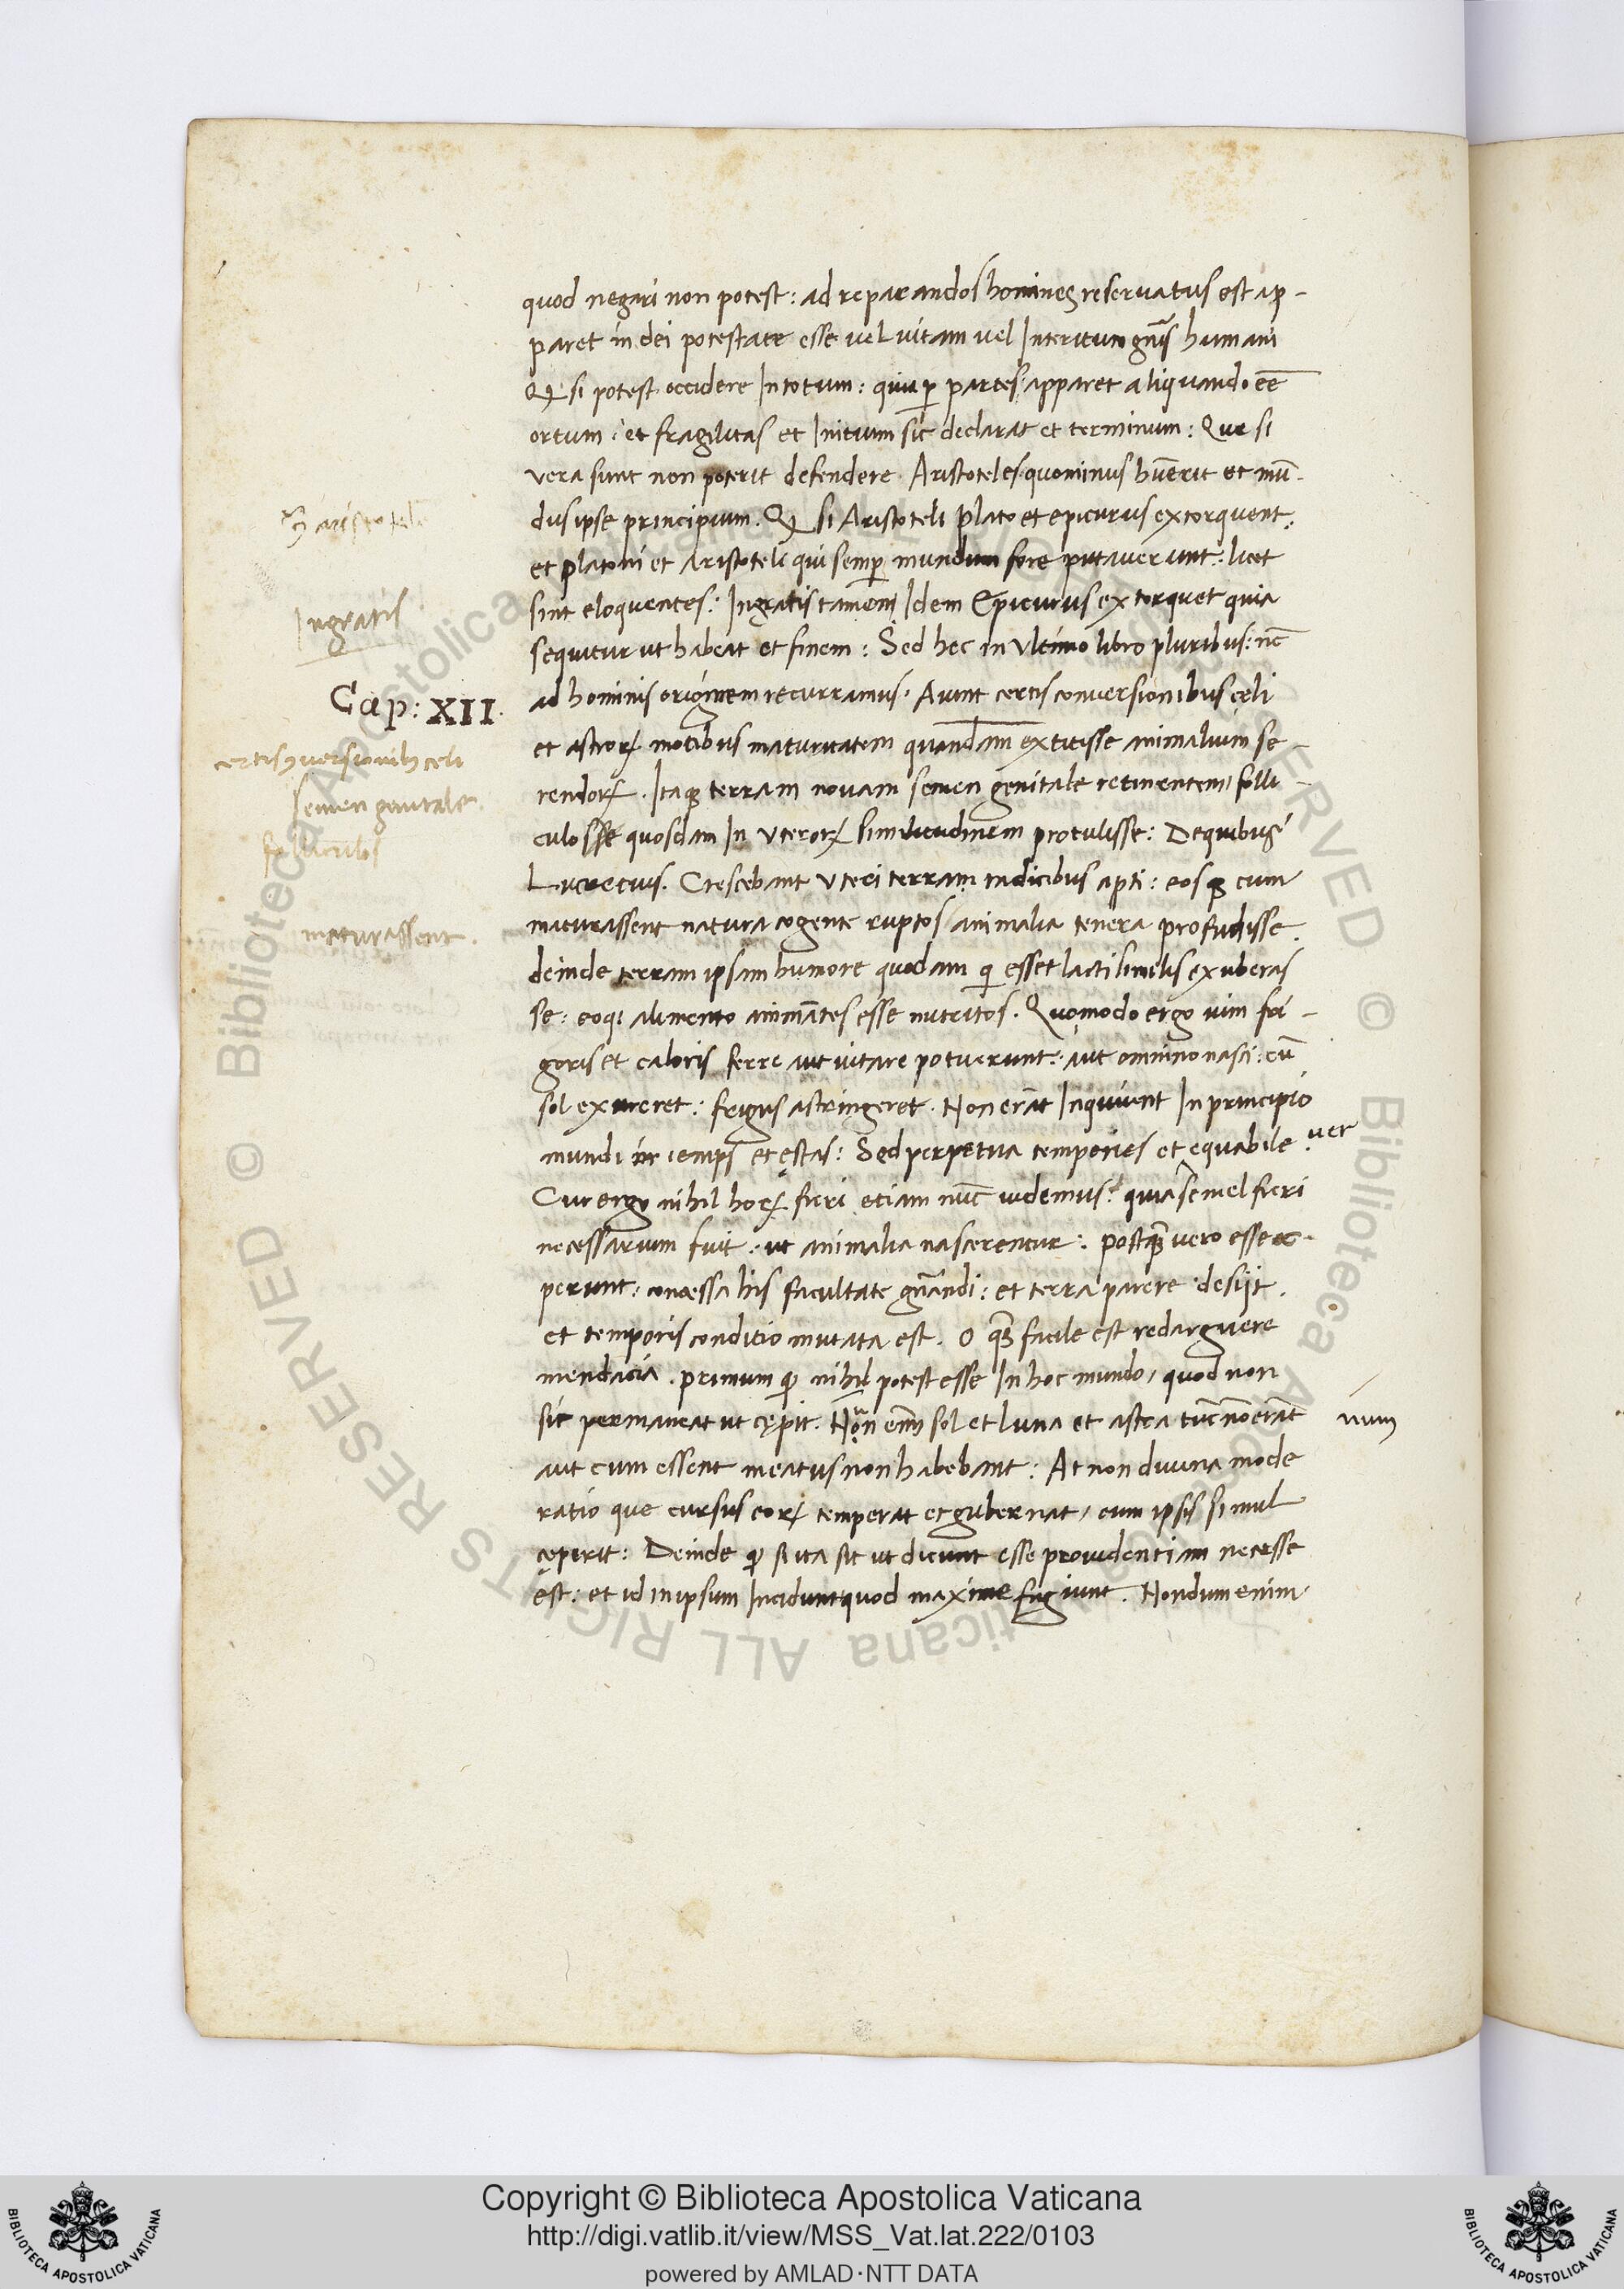 quod negari non potest: ad reparandos homines reseruatus est ap-
paret in dei potestate esse uel uitam uel Interitum gn̄is humani
Q̃ si potest occidere In totum: quia ꝑ partes apparet aliquando eē
ortum: et fragilitas et Initium sic declarat et terminum: Que si
vera sunt non poterit defendere Aristoteles quominus hūerit et mū-
dus ipse principium. Q̃ si Aristoteli plato et epicurus extorquent:
et platoni et Aristoteli qui semꝑ mundum fore putauerunt: licet
sint eloquentes: Ingratis tamen Idem Epicurus extorquet quia
sequitur ut habeat et finem: Sed hec in Vltimo libro pluribus: nc̄
Ingratis
Cap: XII.
ad hominis originem recurramus. Aiunt certis conuersionibus celi
et astroꝝ motibus maturitatem quandam extitisse animalium se-
certis ꝯuersionibꝫ celi
rendoꝝ. Itaqꝫ terram nouam semen genitale retinentem, folli-
semen genitale
culos se quosdam In Vteroꝝ similitudinem protulisse: De quibus
folliculos
Lucretius. Crescebant Vteri terram radicibus apti: eosqꝫ cum
maturassent natura cogente ruptos animalia tenera profudisse.
maturassent.
deinde terram ipsam humore quodam qi esset lacti similis exuberas
se: eoqꝫ alimento animātes esse nutritos. Quomodo ergo uim fri-
goris et caloris ferre aut uitare potuerunt: aut omnino nasci: cū
sol exureret: frigus astringeret. Non erāt Inquiunt In principio
mundi iemps et ęstas: Sed perpetua temperies et equabile uer
Cur ergo nihil hoꝝ fieri etiam nūc uidemus: quia semel fieri
necessarium fuit: ut animalia nascerentur: postqꝫ uero esse ce-
perunt: concessa his facultate gn̄andi: et terra parere desijt.
et temporis conditio mutata est. O qꝫ facile est redarguere
mendacia. primum qi nihil potest esse In hoc mundo, quod non
sic permaneat ut cępit. Non enī sol et luna et astra tūc nō erāt
num
aut cum essent meatus non habebant: At non diuina mode
ratio que cursus eoꝝ temperat et gubernat, cum ipsis simul
cęperit: Deinde qi si ita sit ut dicunt esse prouidentiam necesse
est: et id in ipsum Incidunt quod maxime fugiunt. Nondum enim
Copyright © Biblioteca Apostolica Vaticana
http://digi.vatlib.it/view/MSS_Vat.lat.222/0103
powered by AMLAD·NTT DATA